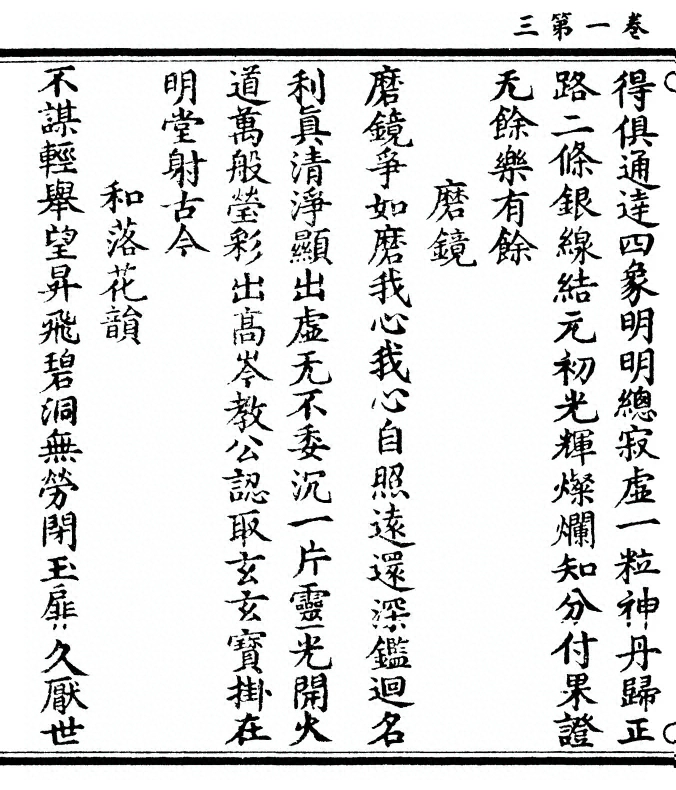 卷一第三
得俱通達四象明明總寂虛一粒神丹歸正
路二條銀線結元初光輝燦爛知分付果證
无餘樂有餘
磨鏡
磨鏡爭如磨我心我心自照遠還深鑑迴名
利眞清淨顯出虛无不委沉一片靈光開大
道萬般瑩彩出髙岑教公認取玄玄寳掛在
明堂射古今
和落花韻
不謀輕舉望昇飛碧洞無勞閉玉扉久厭世